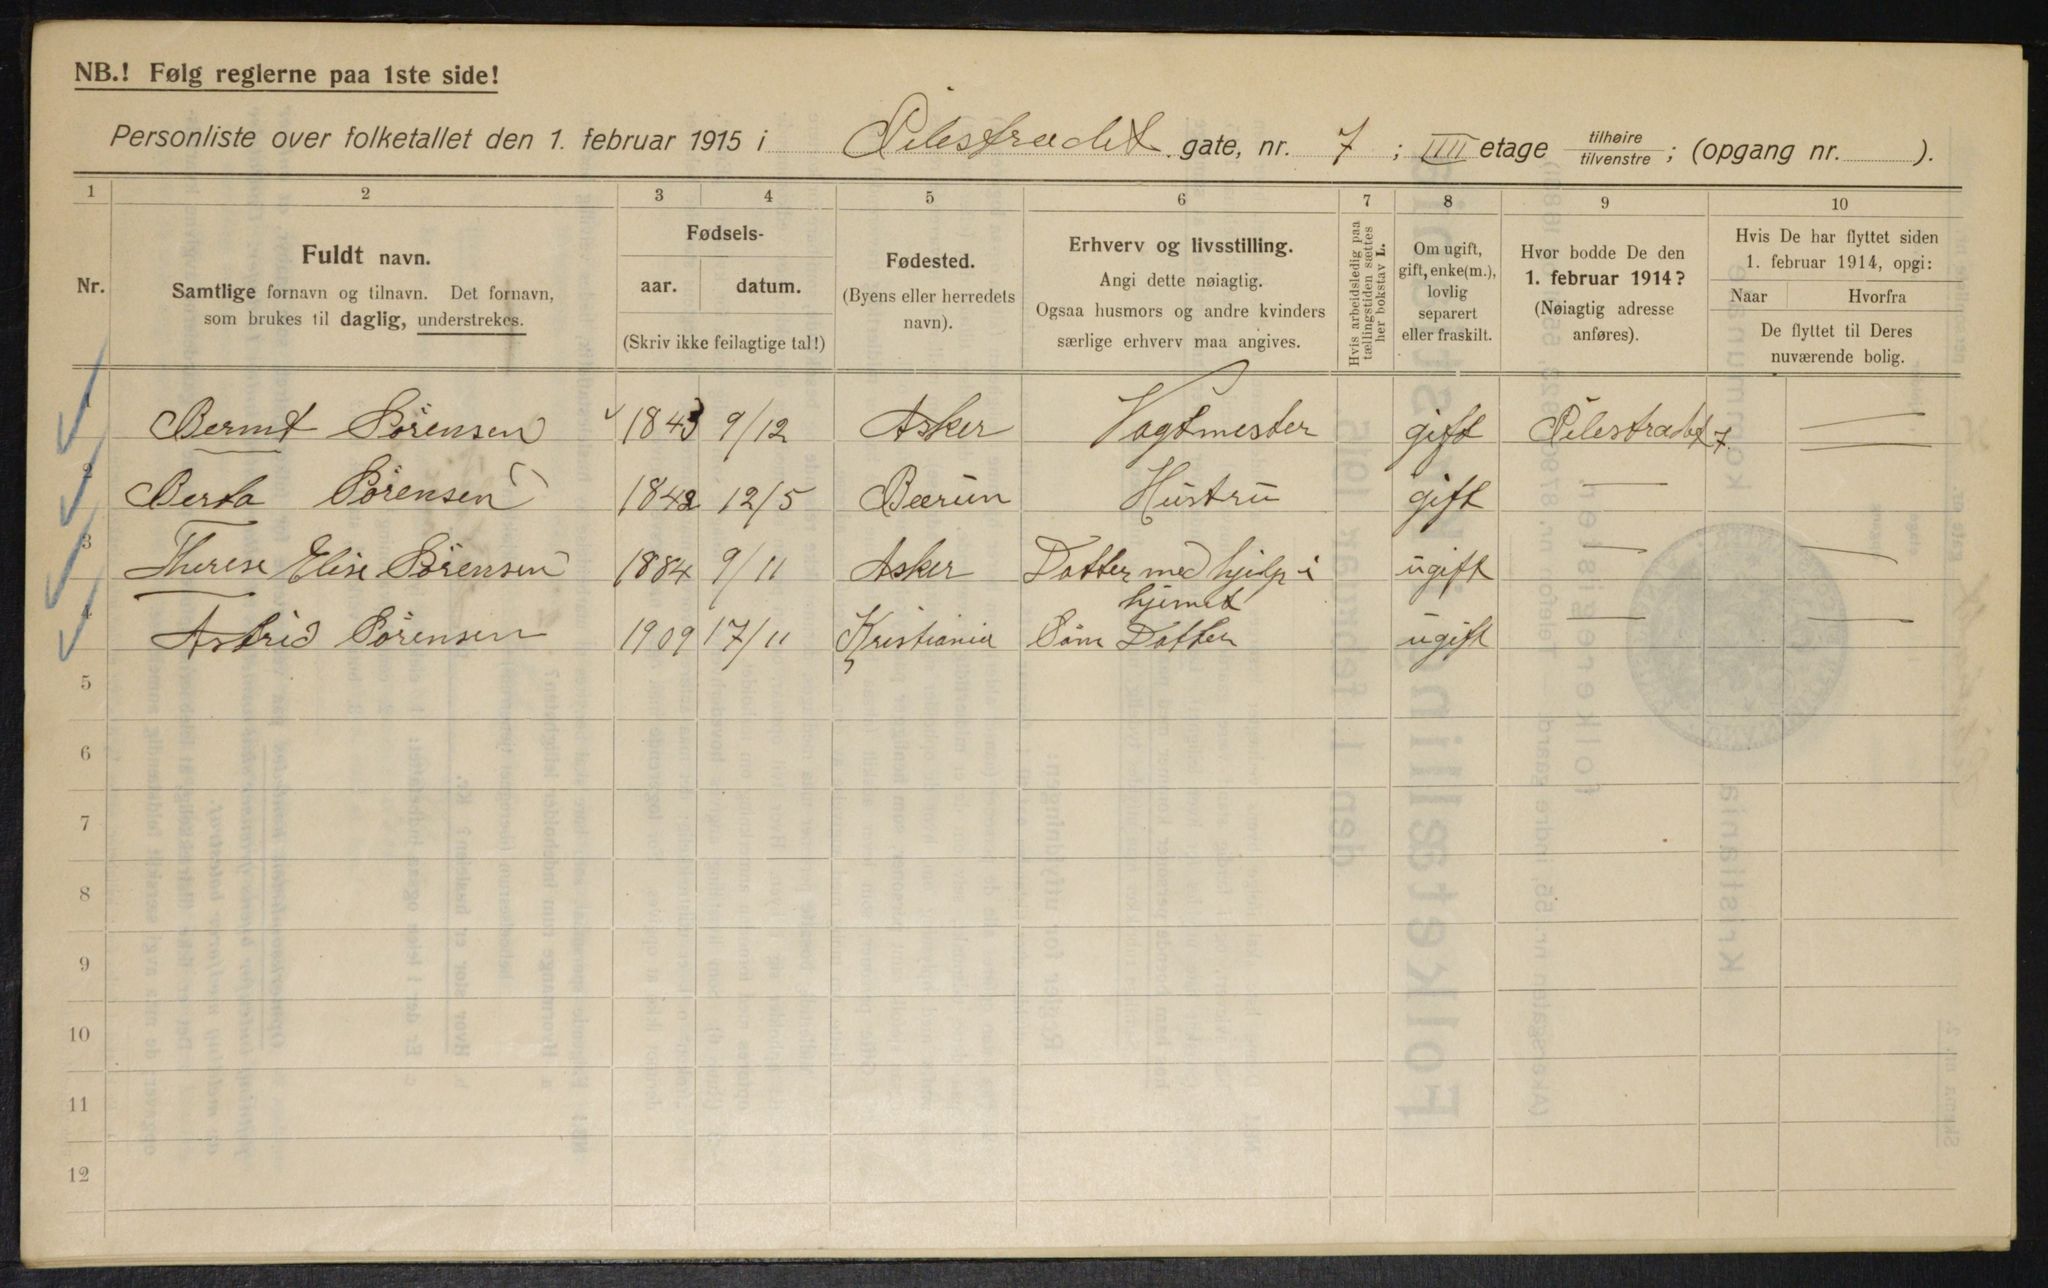 NB.! Følg reglerne paa 1ste side!
Personliste over folketallet den 1. februar 1915 i Pilestrædet gate, nr. 7 ; IIII etage tilhøire / tilvenstre ; (opgang nr. ).
1 2 3 4 5 6 7 8 9 10
Nr.
Fuldt navn.
Samtlige fornavn og tilnavn. Det fornavn,
som brukes til daglig, understrekes.
Fødsels-
aar. datum.
(Skriv ikke feilagtige tal!)
Fødested.
(Byens eller herredets
navn).
Erhverv og livsstilling.
Angi dette nøiagtig.
Ogsaa husmors og andre kvinders
særlige erhverv maa angives.
Hvis arbeidsledig paa
tællingstiden sættes
her bokstav L.
Om ugift,
gift, enke(m.),
lovlig
separert
eller fraskilt.
Hvor bodde De den
1. februar 1914?
(Nøiagtig adresse
anføres).
Hvis De har flyttet siden
1. februar 1914, opgi:
Naar Hvorfra
De flyttet til Deres
nuværende bolig.
1 Bernt Sørensen 1843 9/12 Asker Vagtmester gift Pilestrædet 7 —
2 Berta Sørensen 1842 12/5 Bærum Hustru gift —
3 Therese Elise Sørensen 1884 9/11 Asker Datter med hjelp i ugift — —
hjemet
4 Astrid Sørensen 1909 17/11 Kristiania Søm Datter ugift — —
5
6
7
8
9
10
11
12